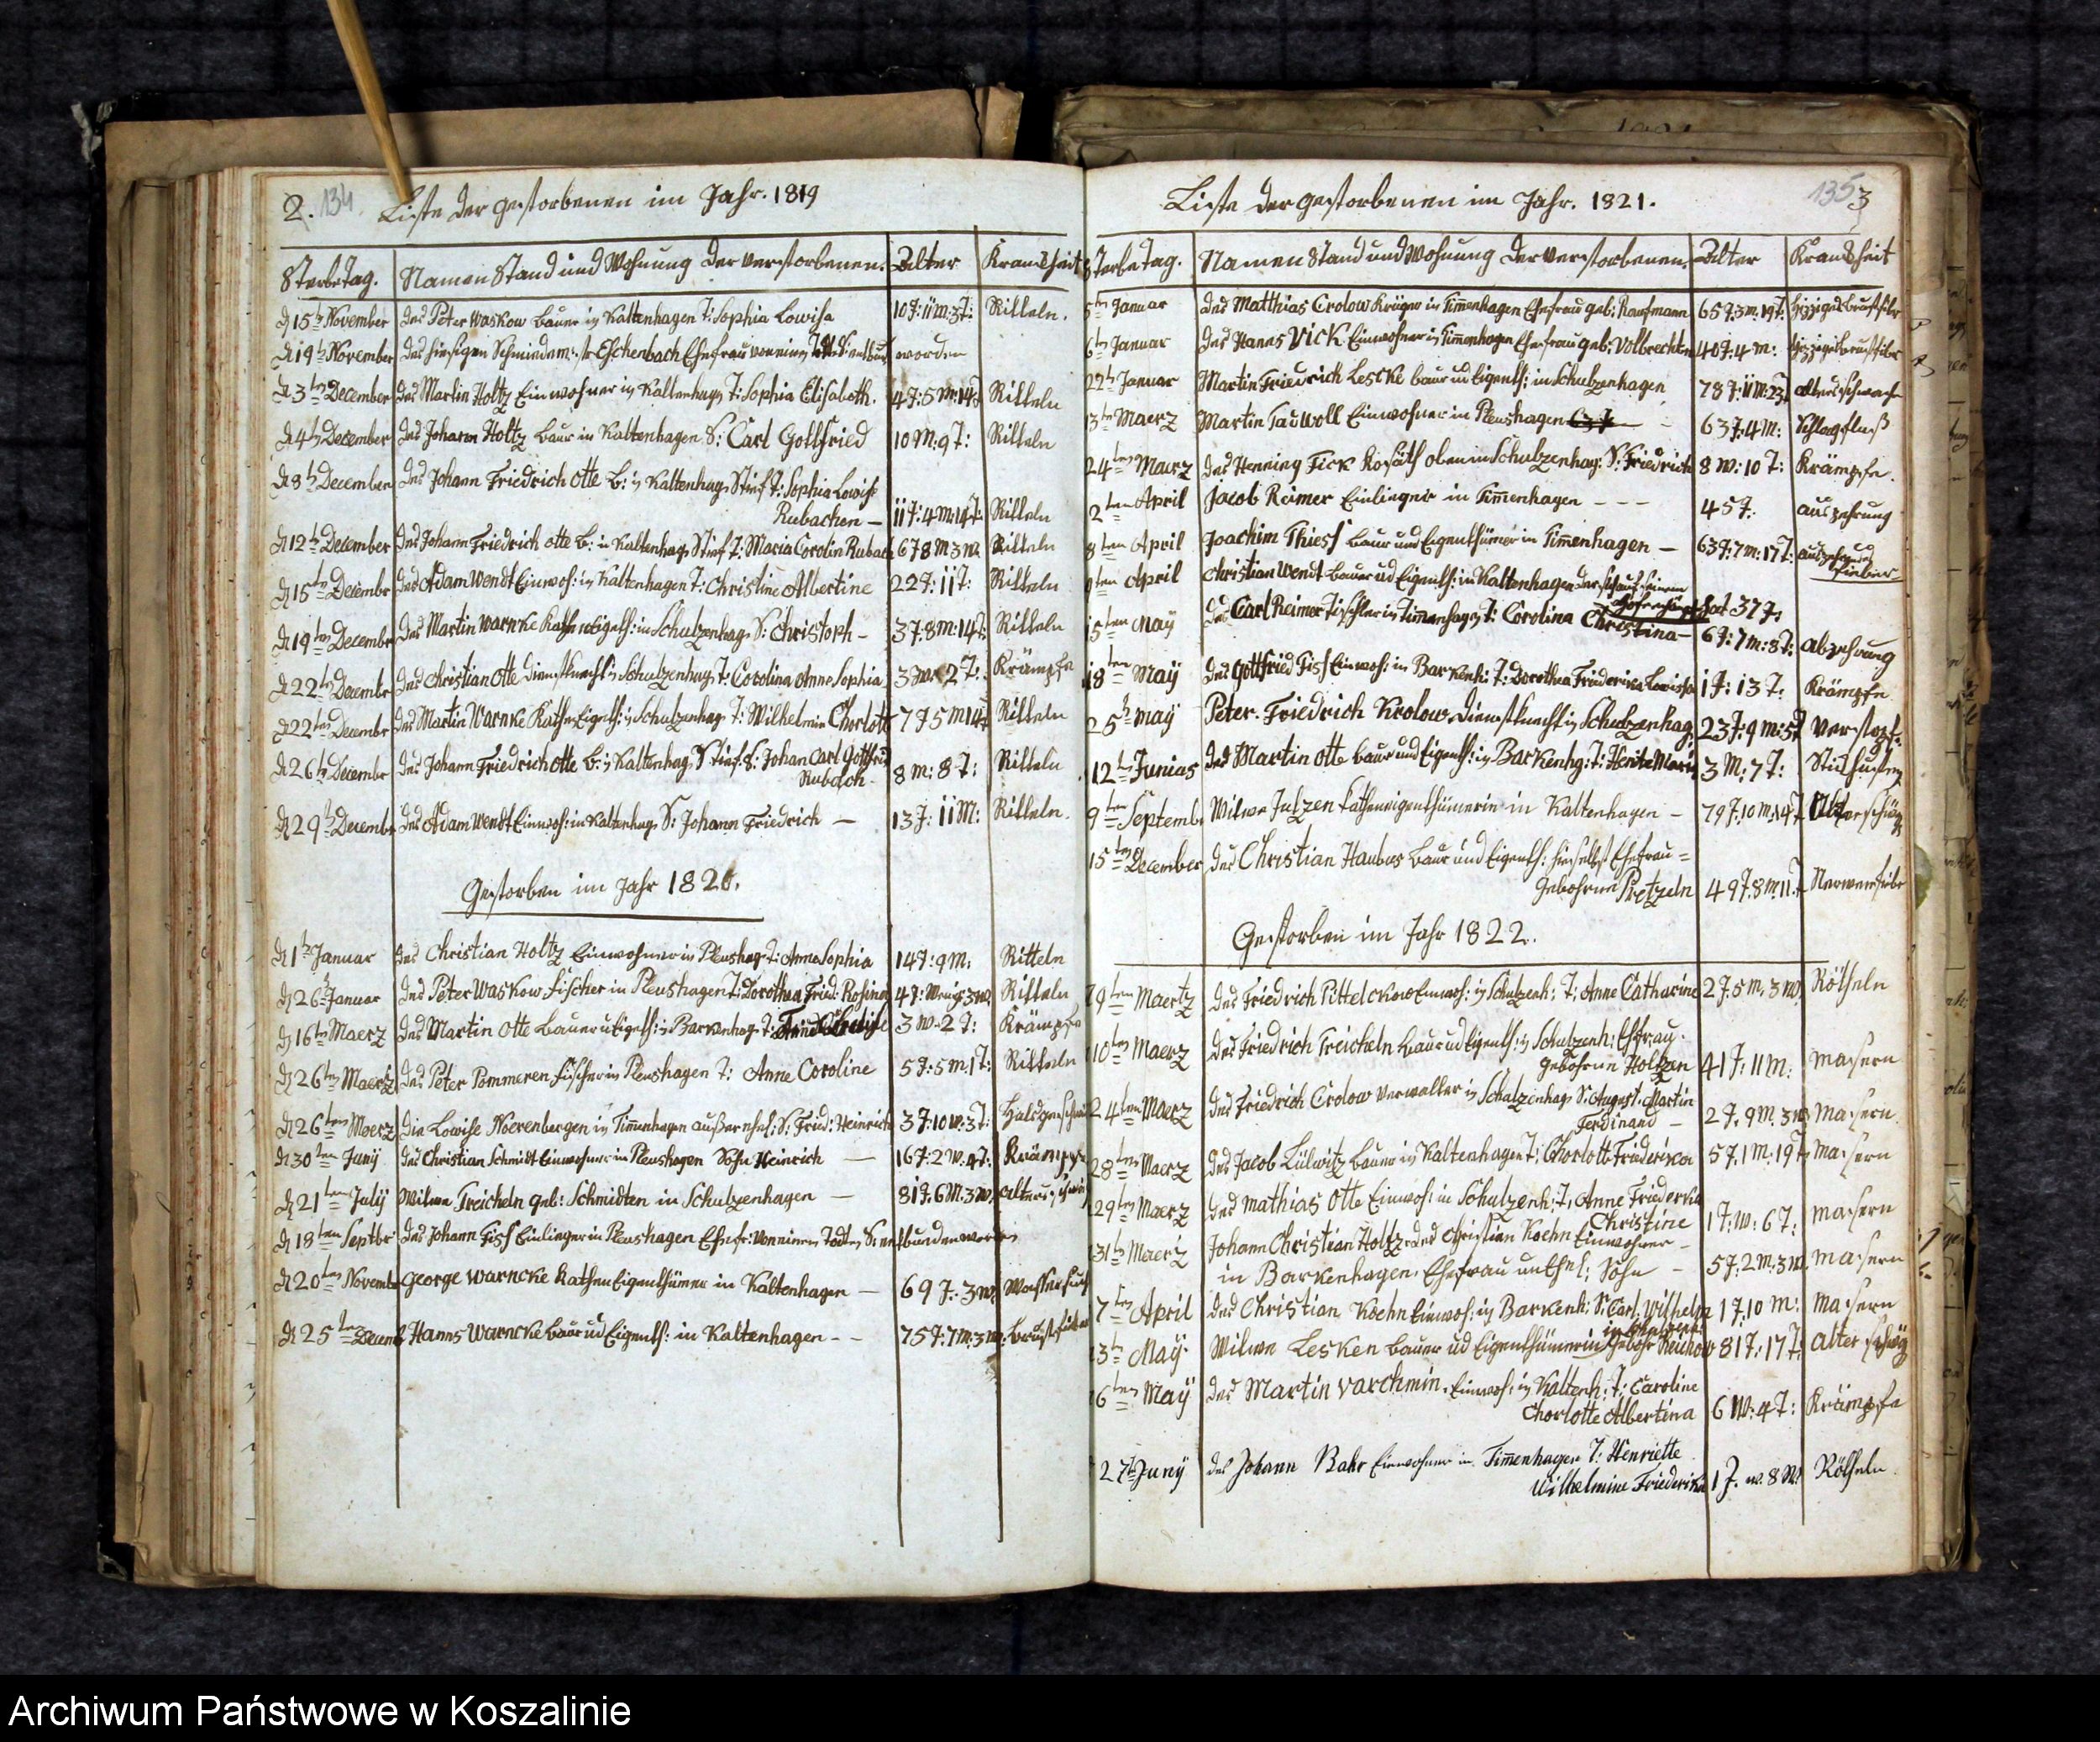 2. 134. Liste der gestorbenen im Jahr. 1819
Sterbe Tag. Namen Stand und Wohnung der verstorbenen. Alter Krankheit
d 15t November des Peter Waskow Bauer in Kaltenhagen T: Sophia Lowisa 10J: 11M: 3T: Ritteln.
d 19t November des hiesigen Schmiedemstr Eschenbach Ehefrau von einem entbunden worden
d 3ten December des Martin Holtz Einwohner in Kaltenhag T: Sophia Elisabeth. 4J: 5M: 14T Ritteln
d 4t December des Johann Holtz Baur in Kaltenhagen S: Carl Gottfried 10M: 9T: Ritteln
d 8t December des Johann Friedrich Otte B: in Kaltenhag Stief T: Sophia Lowise
Rubachen – 11J: 4M: 14T: Ritteln
d 12t December des Johann Friedrich Otte B: in Kaltenhag Stief T: Maria Carolin Rubach 6J 8M 3W. Ritteln
d 15ten December des Adam Wendt Einwoh: in Kaltenhagen T: Christine Albertine 2 2J: 11T: Ritteln
d 19ten December des Martin Warnke Kathen eigeth: in Schulzenhag S: Christoph – 3J: 8M: 14T: Ritteln
d 22t December des Christian Otte Dienstknecht in Schulzenhag T: Carolina Anne Sophia 3W: 2T: Krämpfe
d 22ten December des Martin Warnke Kathen Eigeth: in Schulzenhag T: Wilhelmine Charlott 7J 5M 14T Ritteln
d 26t December des Johann Friedrich Otte B: in Kaltenhag Stief. S: Johan Carl Gottfried
Rubach – 8M: 8T: Ritteln
d 29t December des Adam Wendt Einwoh: in Kaltenhag S: Johann Friedrich – 13J: 11M: Ritteln.
Gestorben im Jahr 1820.
d 1t Januar des Christian Holtz Einwohner in Pleushag T: Anna Sophia 14J: 9M: Ritteln
d 26t Januar des Peter Waskow Fischer in Pleushagen T: Dorothea Fried: Rosina 4J: wenig 3W. Ritteln
d 16ten Maerz des Martin Otte Bauer u Eigeth: in Barkenhag T: 3W. 2T: Krämpfe
d 26ten Maertz des Peter Pommeren Fischer in Pleushagen T: Anne Caroline 5J: 5M: 1T: Ritteln
d 26ten Maerz die Lowise Noerenbergen in Timenhagen außer ehel: S: Fried: Heinrich 3J: 10W: 3T: Halsgeschwü
d 30ten Junÿ des Christian Schmidt Einwohner in Pleushagen Sohn Heinrich – 16J: 2W: 4T: Krämpfe
d 21ten Julÿ Witwe Treicheln geb: Schmidten in Schulzenhagen – 81J. 6M. 3W. altersschwäch
d 18ten Septbr des Johann Fiss Einlieger in Pleushagen Ehefr: von einem Todten S: entbunden worden
d 20ten November George Warncke Kathen Eigenthümer in Kaltenhagen – 69J. 3W. Wassersucht
d 25ten Decemb Hanns Warncke Baur ud Eigenth: in Kaltenhagen - - 75J: 7M: 3W: Brustfieber
Liste der gestorbenen im Jahr. 1821. 135 3
Sterbe Tag. Namen Stand und Wohnung der verstorbenen. Alter Krankheit
5ten Januar des Matthias Crolow Krüger in Timmenhagen Ehefrau geb: Kaufmann 65J: 3M: 19T. hizziges Brustfiber
6ten Januar des Hanns Vick Einwohner in Timmenhagen Ehefrau geb: Volbrechten 40J: 4M: hizziges Brustfiber
22t Januar Martin Friedrich Lescke Baur ud Eigenth: in Schulzenhagen 78J: 11M: 23T. altersschwäche
3ten Maerz Martin Tauvoll Einwohner in Pleushagen 63J: 4M: Schlagfluß
24ten Maerz des Henning Fick Kosäth olen in Schulzenhag: S: Friedrich 8W: 10T: Krämpfe.
2ten April Jacob Reimer Einlieger in Timmenhagen - - - 45J. auszehrung
8ten April Joachim Thiess Baur und Eigenthümer in Timmenhagen – 63J: 7M: 17T: auszehrend
Fieber
9ten April Christian Wendt Bauer ud Eigenth: in Kaltenhagen der sich auf seinem
hat 37J.
15ten Maÿ des Carl Reimer Tischler in Timmenhagen T: Carolina Christina – 6J: 7M: 8T: abzehrung
18ten Maÿ des Gottfried Fiss Einwoh: in Barkenh: T: Dorothea Friederica Lowisa 1J: 13T: Krämpfe
25t Maÿ Peter. Friedrich Krolow Dienstknecht in Schulzenhag: 23J: 9M: 5T Verstopf:
12t Junius des Martin Otte Baur und Eigenth: in Barkenhg: T: Henrte Maria 3M: 7T: Stickhusten
9ten September Witwe Julzen Katheneigenthümerin in Kaltenhagen – 79J: 10M: 14T.
15ten December des Christian Haubus Baur und Eigenth: hieselbst Ehefrau =
gebohrne Pretzeln 49J: 8M: 11T Nervenfieber
Gestorben im Jahr 1822.
9ten Maertz des Friedrich Pittelckow Einwoh: in Schulzenh: T: Anne Catharine 2J. 5M. 3W. Rötheln
10ten Maerz des Friedrich Treicheln Baur ud Eigenth: in Schulzenh: Ehefrau.
gebohrne Holtzen 41J: 11M: Masern
24ten Maerz des Friedrich Crolow Verwalter in Schulzenhag S: August. Martin
Ferdinand – 2J. 9M. 3W. Masern.
28ten Maerz des Jacob Lülwitz Bauer in Kaltenhagen T: Charlotte Friederica 5J. 1M. 19T. Masern
29ten Maerz des Mathias Otte Einwoh: in Schulzenh: T: Anne Friederka
Christine 1J: W: 6T: Masern
31t Maerz Johann Christian Holtz des Christian Koehn Einwohner –
in Barkenhagen Ehefrau unehel: Sohn – 5J: 2M: 3W. Masern
7ten April des Christian Koehn Einwoh: in Barkenh: S: Carl Wilhelm 1J: 10M: Masern
3t Maÿ. Witwe Lesken Bauer ud Eigenthümerin 81J: 17T: Alter schwäch
6ten Maÿ des Martin Varchmin. Einwoh: in Kaltenh: T: Caroline
Charlotte Albertina 6W: 4T: Krämpfe
27t Junÿ des Johann Bahr Einwohner in Timmenhagen T: Henriette
Wilhelmine Friederike 1J. w. 8W: Rötheln.
Archiwum Państwowe w Koszalinie